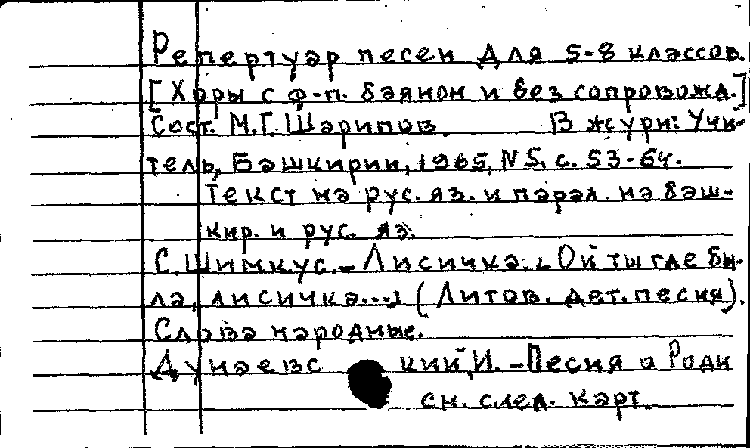 Репертуар песен для 5-8 классов.
[Хоры с ф-п. баяном и без сопровожд.]
Сост. М.Г. Шарипов. В журн: Учи-
тель, Башкирии, 1965, N 5, с. 53-64.
Текст на рус. яз. и парал. на баш-
кир. и рус. яз.
С. Шимкус. - Лисичка. "Ой ты где бы-
ла, лисичка..." (Литов. дет. песня).
Слова народные.
Дунаевский, И. - Песня о Роди
см. след. карт.